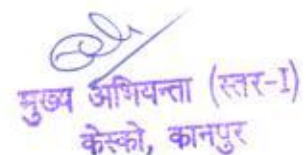 मुख्य अभियन्ता (स्तर-I)
केस्को, कानपुर